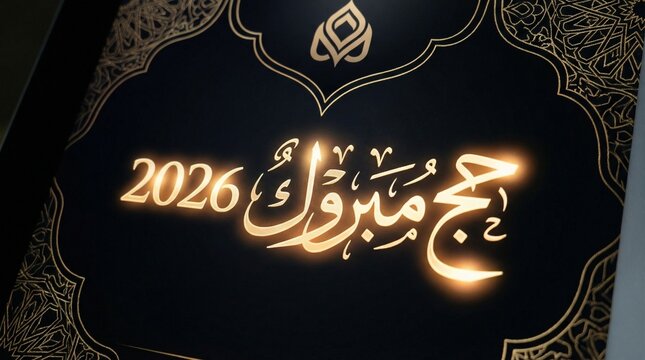 حج مُبَروكٌ 2026